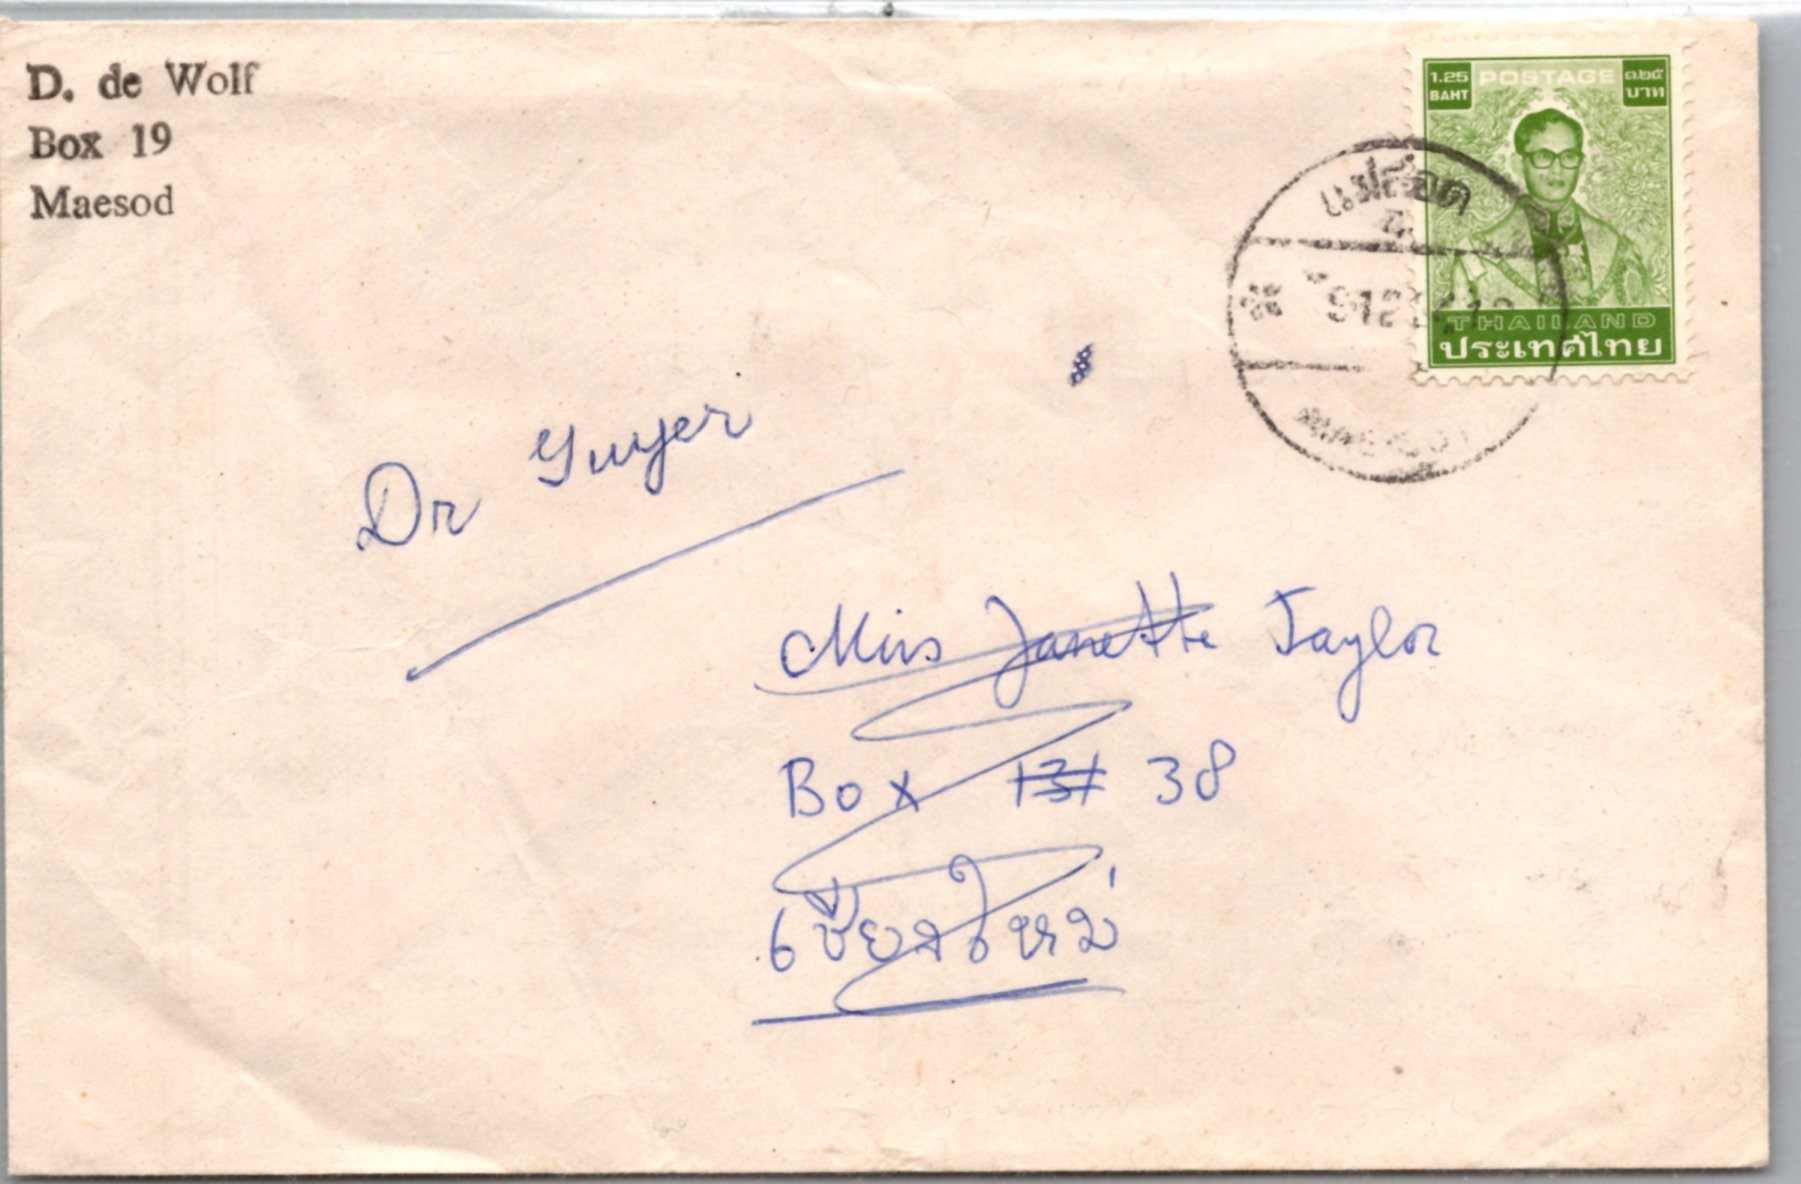 D. de Wolf
Box 19
Maesod
1.25 POSTAGE ๑.๒๕
BAHT บาท
แม่สอด
THAILAND
ประเทศไทย
Dr Guyer
Miss Janette Taylor
Box 131 38
เชียงใหม่